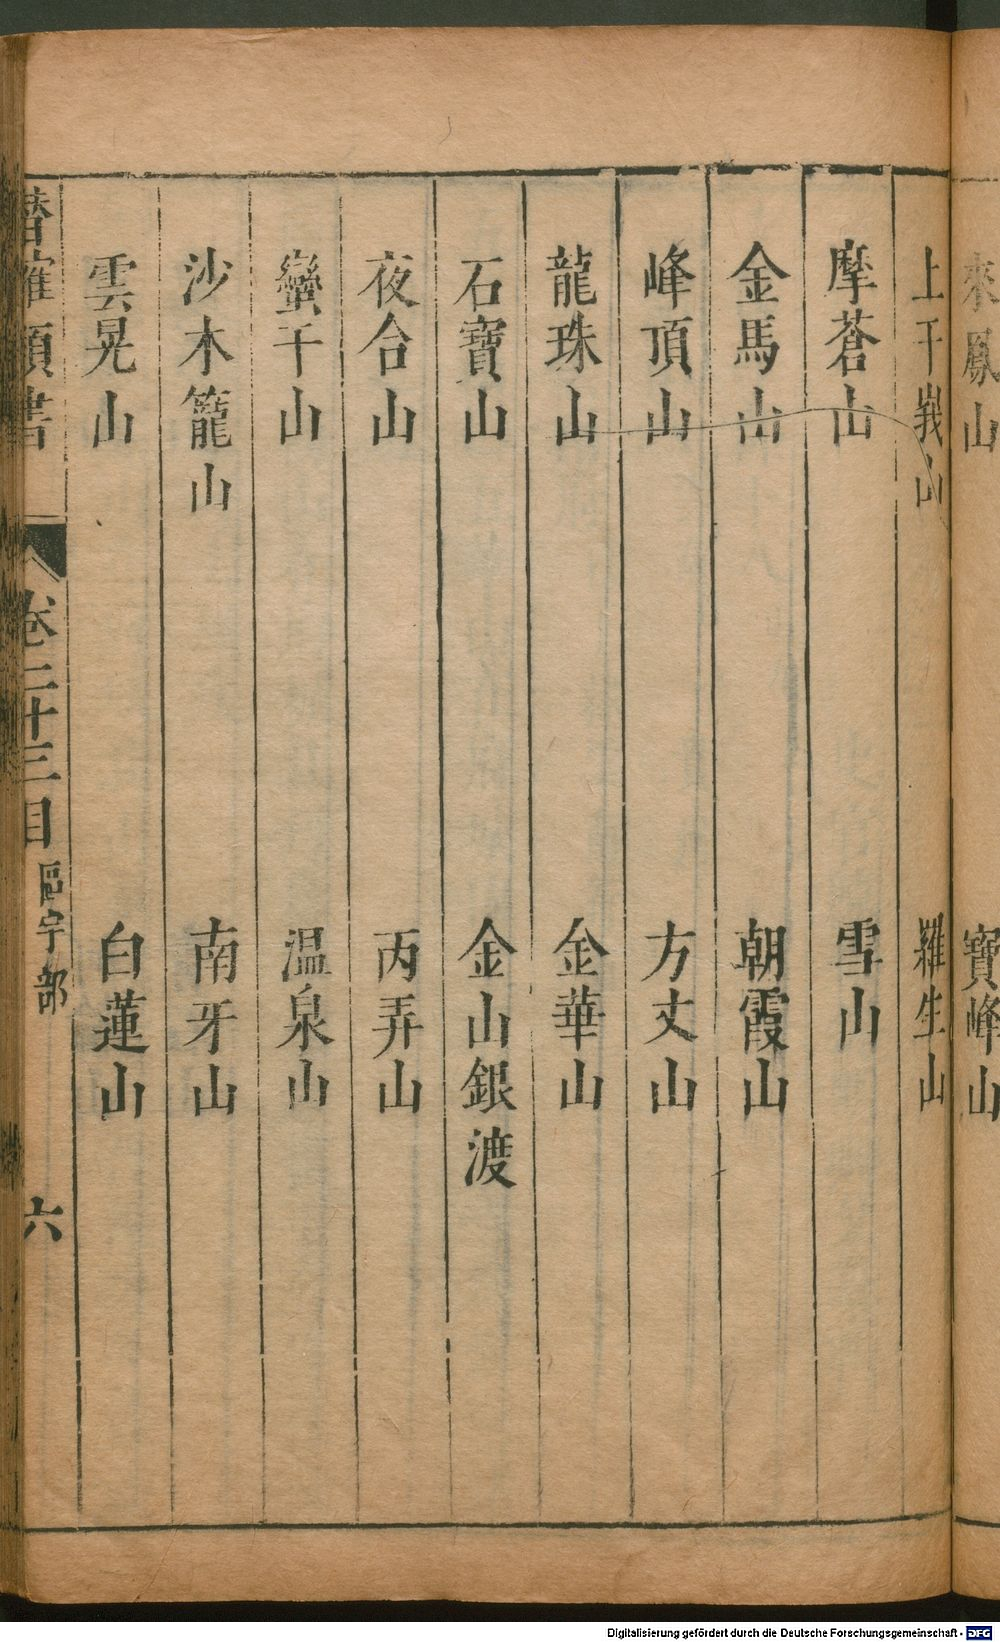 來鳳山　寶峰山
上干峩山　羅生山
摩蒼山　雪山
金馬山　朝霞山
峰頂山　方丈山
龍珠山　金華山
石寶山　金山銀渡
夜合山　丙弄山
蠻干山　温泉山
沙木籠山　南牙山
雲晃山　白蓮山
潛確類書　卷二十三目　區宇部　六
Digitalisierung gefördert durch die Deutsche Forschungsgemeinschaft - DFG